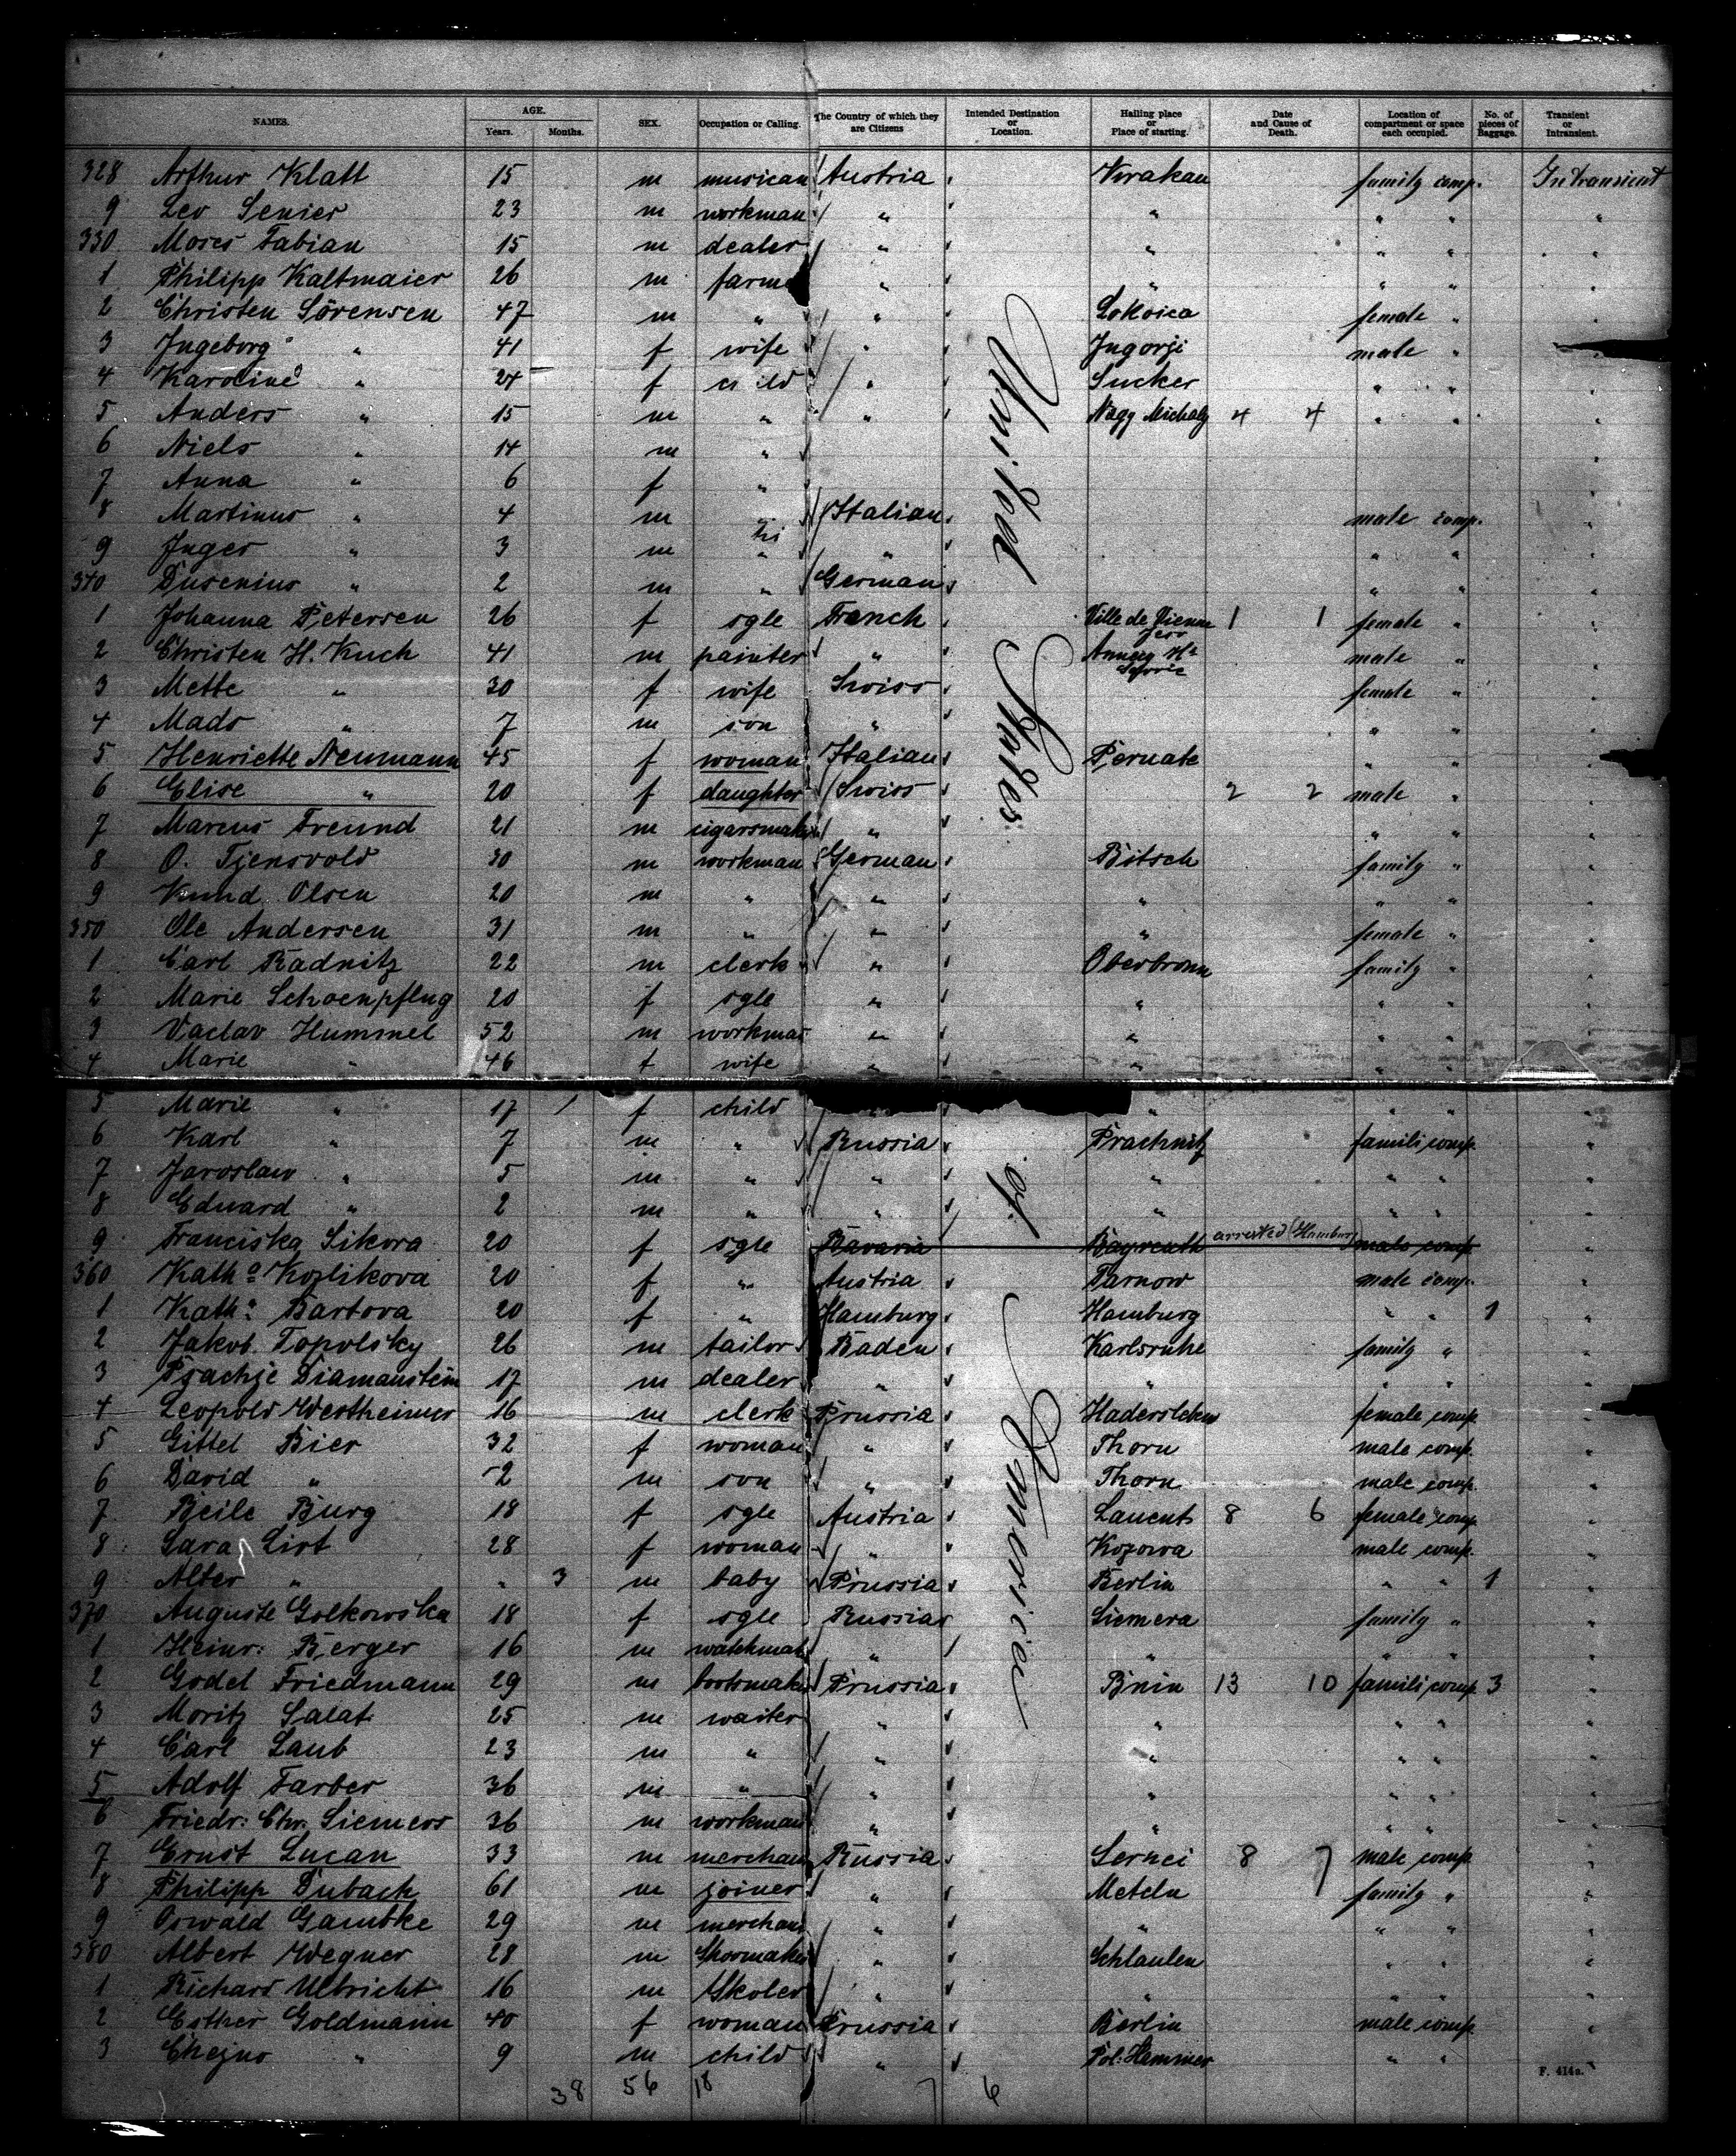 NAMES. AGE. Years. Months. SEX. Occupation or Calling. The Country of which they are Citizens Intended Destination or Location. Hailing place or Place of starting. Date and Cause of Death. Location of compartment or space each occupied. No. of pieces of Baggage. Transient or Intransient.
328 Arthur Klatt 15 m musican Austria Krakau family comp. Intransient
9 Leo Senier 23 m workman " " " " "
330 Moses Fabian 15 m dealer " " " " "
1 Philipp Kaltmaier 26 m farme " " " " "
2 Christen Sörensen 47 m " " Lokoica female " "
3 Ingeborg " 41 f wife " Jugorji male "
4 Karoline " 24 f child " Sucker " " "
5 Anders " 15 m " " Nagy Michaly 4 4 " " "
6 Niels " 14 m " "
7 Anna " 6 f " "
8 Martinus " 4 m " Italian male comp. "
9 Inger " 3 m " " " " "
340 Dusenius " 2 m " German " " "
1 Johanna Petersen 26 f sgle French Ville de Vienne 1 1 female " "
2 Christen H. Kuch 41 m painter " Annecy Hte Savoie male " "
3 Mette " 30 f wife Swiss female " "
4 Mads " 7 m son " " " "
5 Henriette Neumann 45 f woman Italian Pernate " "
6 Elise " 20 f daughter Swiss 2 2 male " "
7 Marcus Freund 21 m cigarsmaker " " " "
8 O. Tjensvold 30 m workman German Bitsch family " "
9 Knud Olsen 20 m " " " " " "
350 Ole Andersen 31 m " " " female " "
1 Carl Radnitz 22 m clerk " Oberbronn family " "
2 Marie Schoenpflug 20 f sgle " " " " "
3 Vaclav Hummel 52 m workman " " " " "
4 Marie " 46 f wife " " " " "
5 Marie " 17 f child " " " " "
6 Karl " 7 m " Russia Prachnitz famili comp. "
7 Jaroslaw " 5 m " " " " " "
8 Eduard " 2 m " " " " " "
9 Franciska Sikora 20 f sgle Bavaria Bayreuth arrested (Hamburg) male comp "
360 Katha Kozlikova 20 f " Austria Tarnow male comp. "
1 Katha Bartova 20 f " Hamburg Hamburg " " 1 "
2 Jakob Topolsky 26 m tailor Baden Karlsruhe family " "
3 Psachje Diamanstein 17 m dealer " " " " "
4 Leopold Westheimer 16 m clerk Prussia Hadersleben female comp "
5 Gittel Bier 32 f woman " Thorn male comp. "
6 David " 2 m son " Thorn male comp.
7 Beile Burg 18 f sgle Austria Lancut 8 6 female comp "
8 Sara Lirt 28 f woman " Kozowa male comp. "
9 Alter " " 3 m baby Prussia Berlin " " 1 "
370 Auguste Golkowska 18 f sgle Russia Siemera family " "
1 Heinr. Berger 16 m watchmak " " " " "
2 Godel Friedmann 29 m bootsmaker Prussia Bnin 13 10 famili comp 3 "
3 Moritz Salat 25 m waiter " " " " "
4 Carl Laub 23 m " " " " " "
5 Adolf Farber 36 m " " " " " "
6 Friedr. Chr. Siemers 36 m workman " " " " "
7 Ernst Lucan 33 m merchant Russia Sernei 8 7 male comp "
8 Philipp Dubach 61 m joiner " Meteln family " "
9 Oswald Gambke 29 m merchant " " " " "
380 Albert Wegner 28 m Shoemaker " Schlaulen " " "
1 Richard Ulbricht 16 m Skoler " " " " "
2 Esther Goldmann 40 f woman Prussia Berlin male comp "
3 Chejno " 9 m child " Pol. Hammer " "
United States of America
38 56 18 7 6
F. 414a.